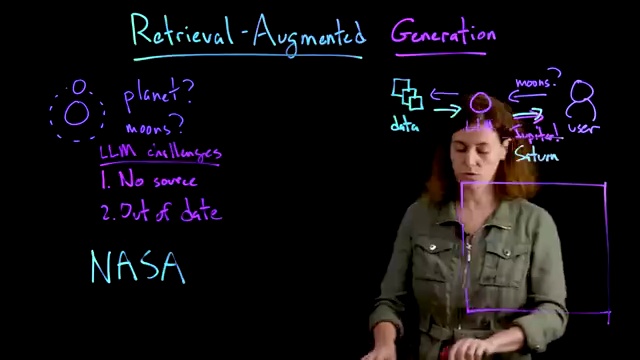 Retrieval-Augmented Generation
planet?
moons?
LLM challenges
1. No source
2. Out of date
NASA
moons?
data
LLM
Jupiter!
user
Saturn